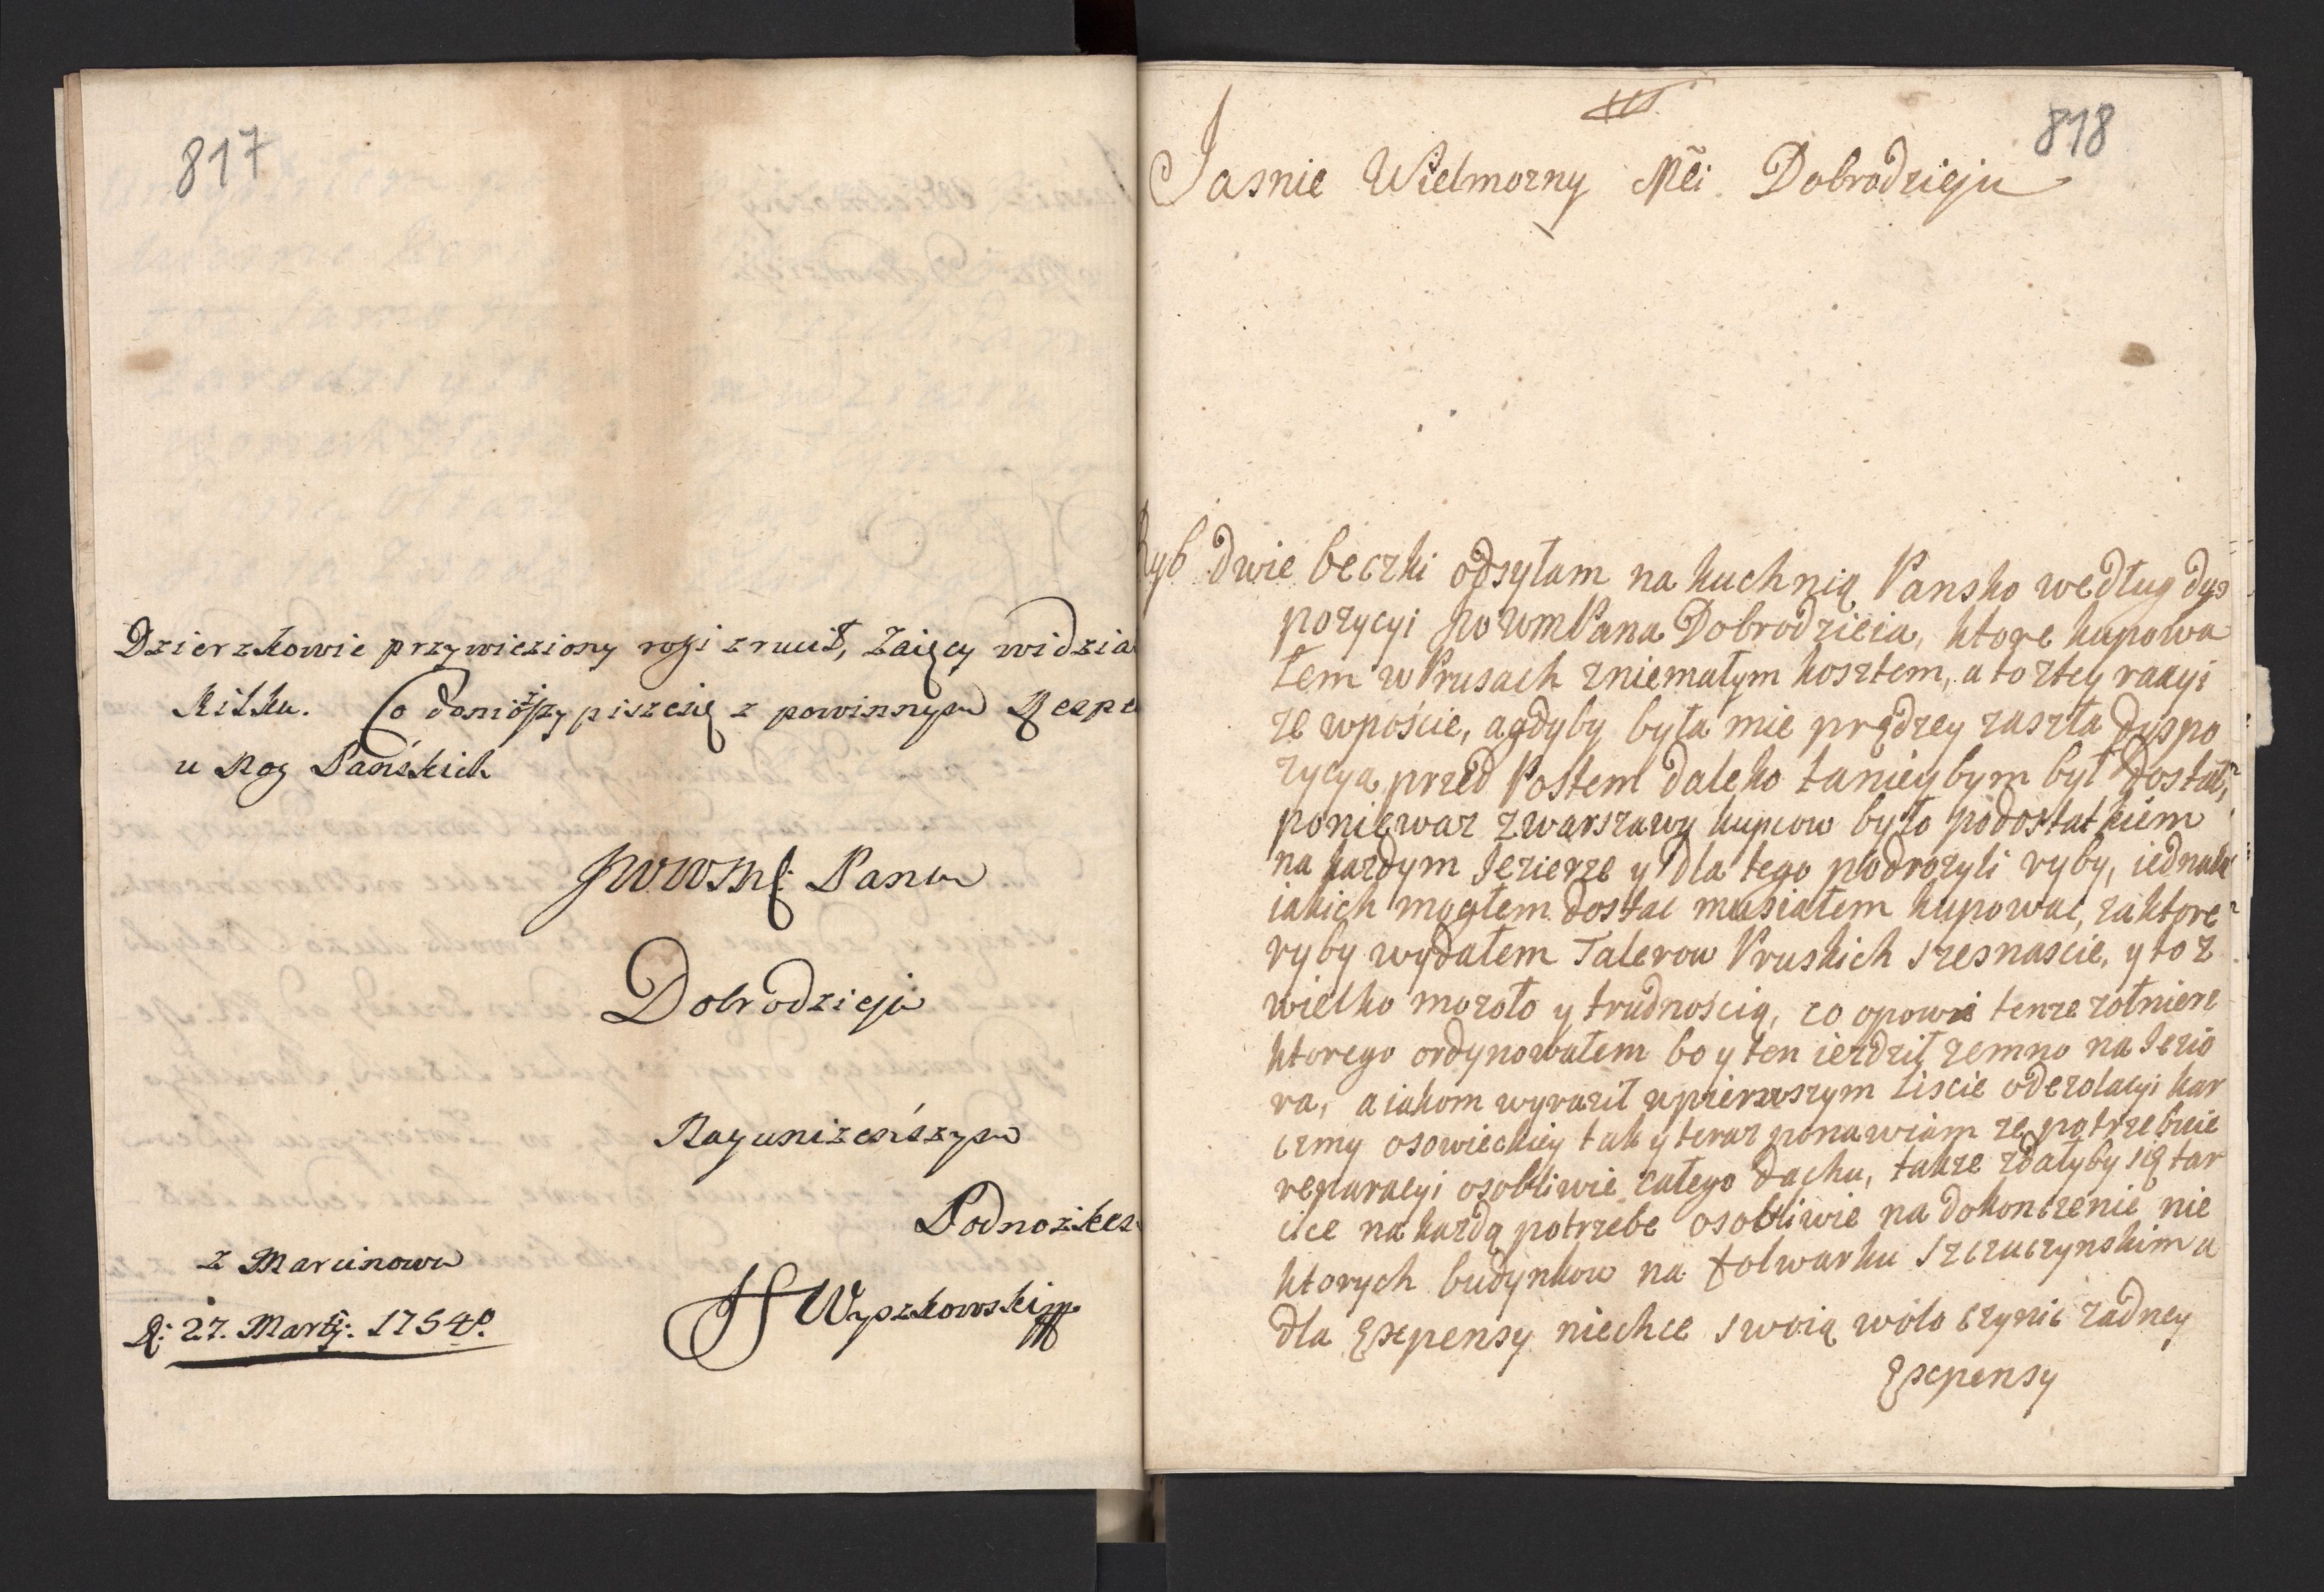 817
Dzierzkowie przywieziony rogi zrucił, Zaięcy widzia
kilku. Co donioższy piszesię z powinnym Respe
u Nog Pańskich
JWWMć Pana
Dobrodzieja
Nayuniżeńszym
Podnożkie
z Marcinowa
D: 27. Martij. 1754o.
Wyszkowski mp
818
Jasnie Wielmozny Mći Dobrodzieju
Ryb dwie beczki odsyłam na kuchnią Pansko według dys
pozycyi JWWMPana Dobrodzieia, ktore kupowa
łem w Prusach zniemałym kosztem, a to ztey racyi
ze wpoście, agdyby była mie prędzey zaszła dyspo
zycya przed Postem daleko taniey bym był dostał,
poniewaz zwarszawy kupcow było podostatkiem
na kazdym Jezierze y dla tego podrozyli ryby, iednak
iakich mogłem dostac musiałem kupowac, zaktore
ryby wydałem Talerow Pruskich szesnascie, y to z
wielko mozoło y trudnoscią, co opowi tenze zołnierz
ktorego ordynowałem bo y ten iezdził zemno na Jezio
ra, a iakom wyraził wpierwszym liscie odezolacyi kar
czmy osowieckiey tak y teraz ponawiam ze potrzebuie
reparacyi osobliwie całego dachu, takze zdałyby się tar
cice na kazdą potrzebe osobliwie na dokonczenie nie
ktorych budynkow na folwarku Szczuczynskim a
dla Expensy niechce swoią wolo czynic zadney
Expensy